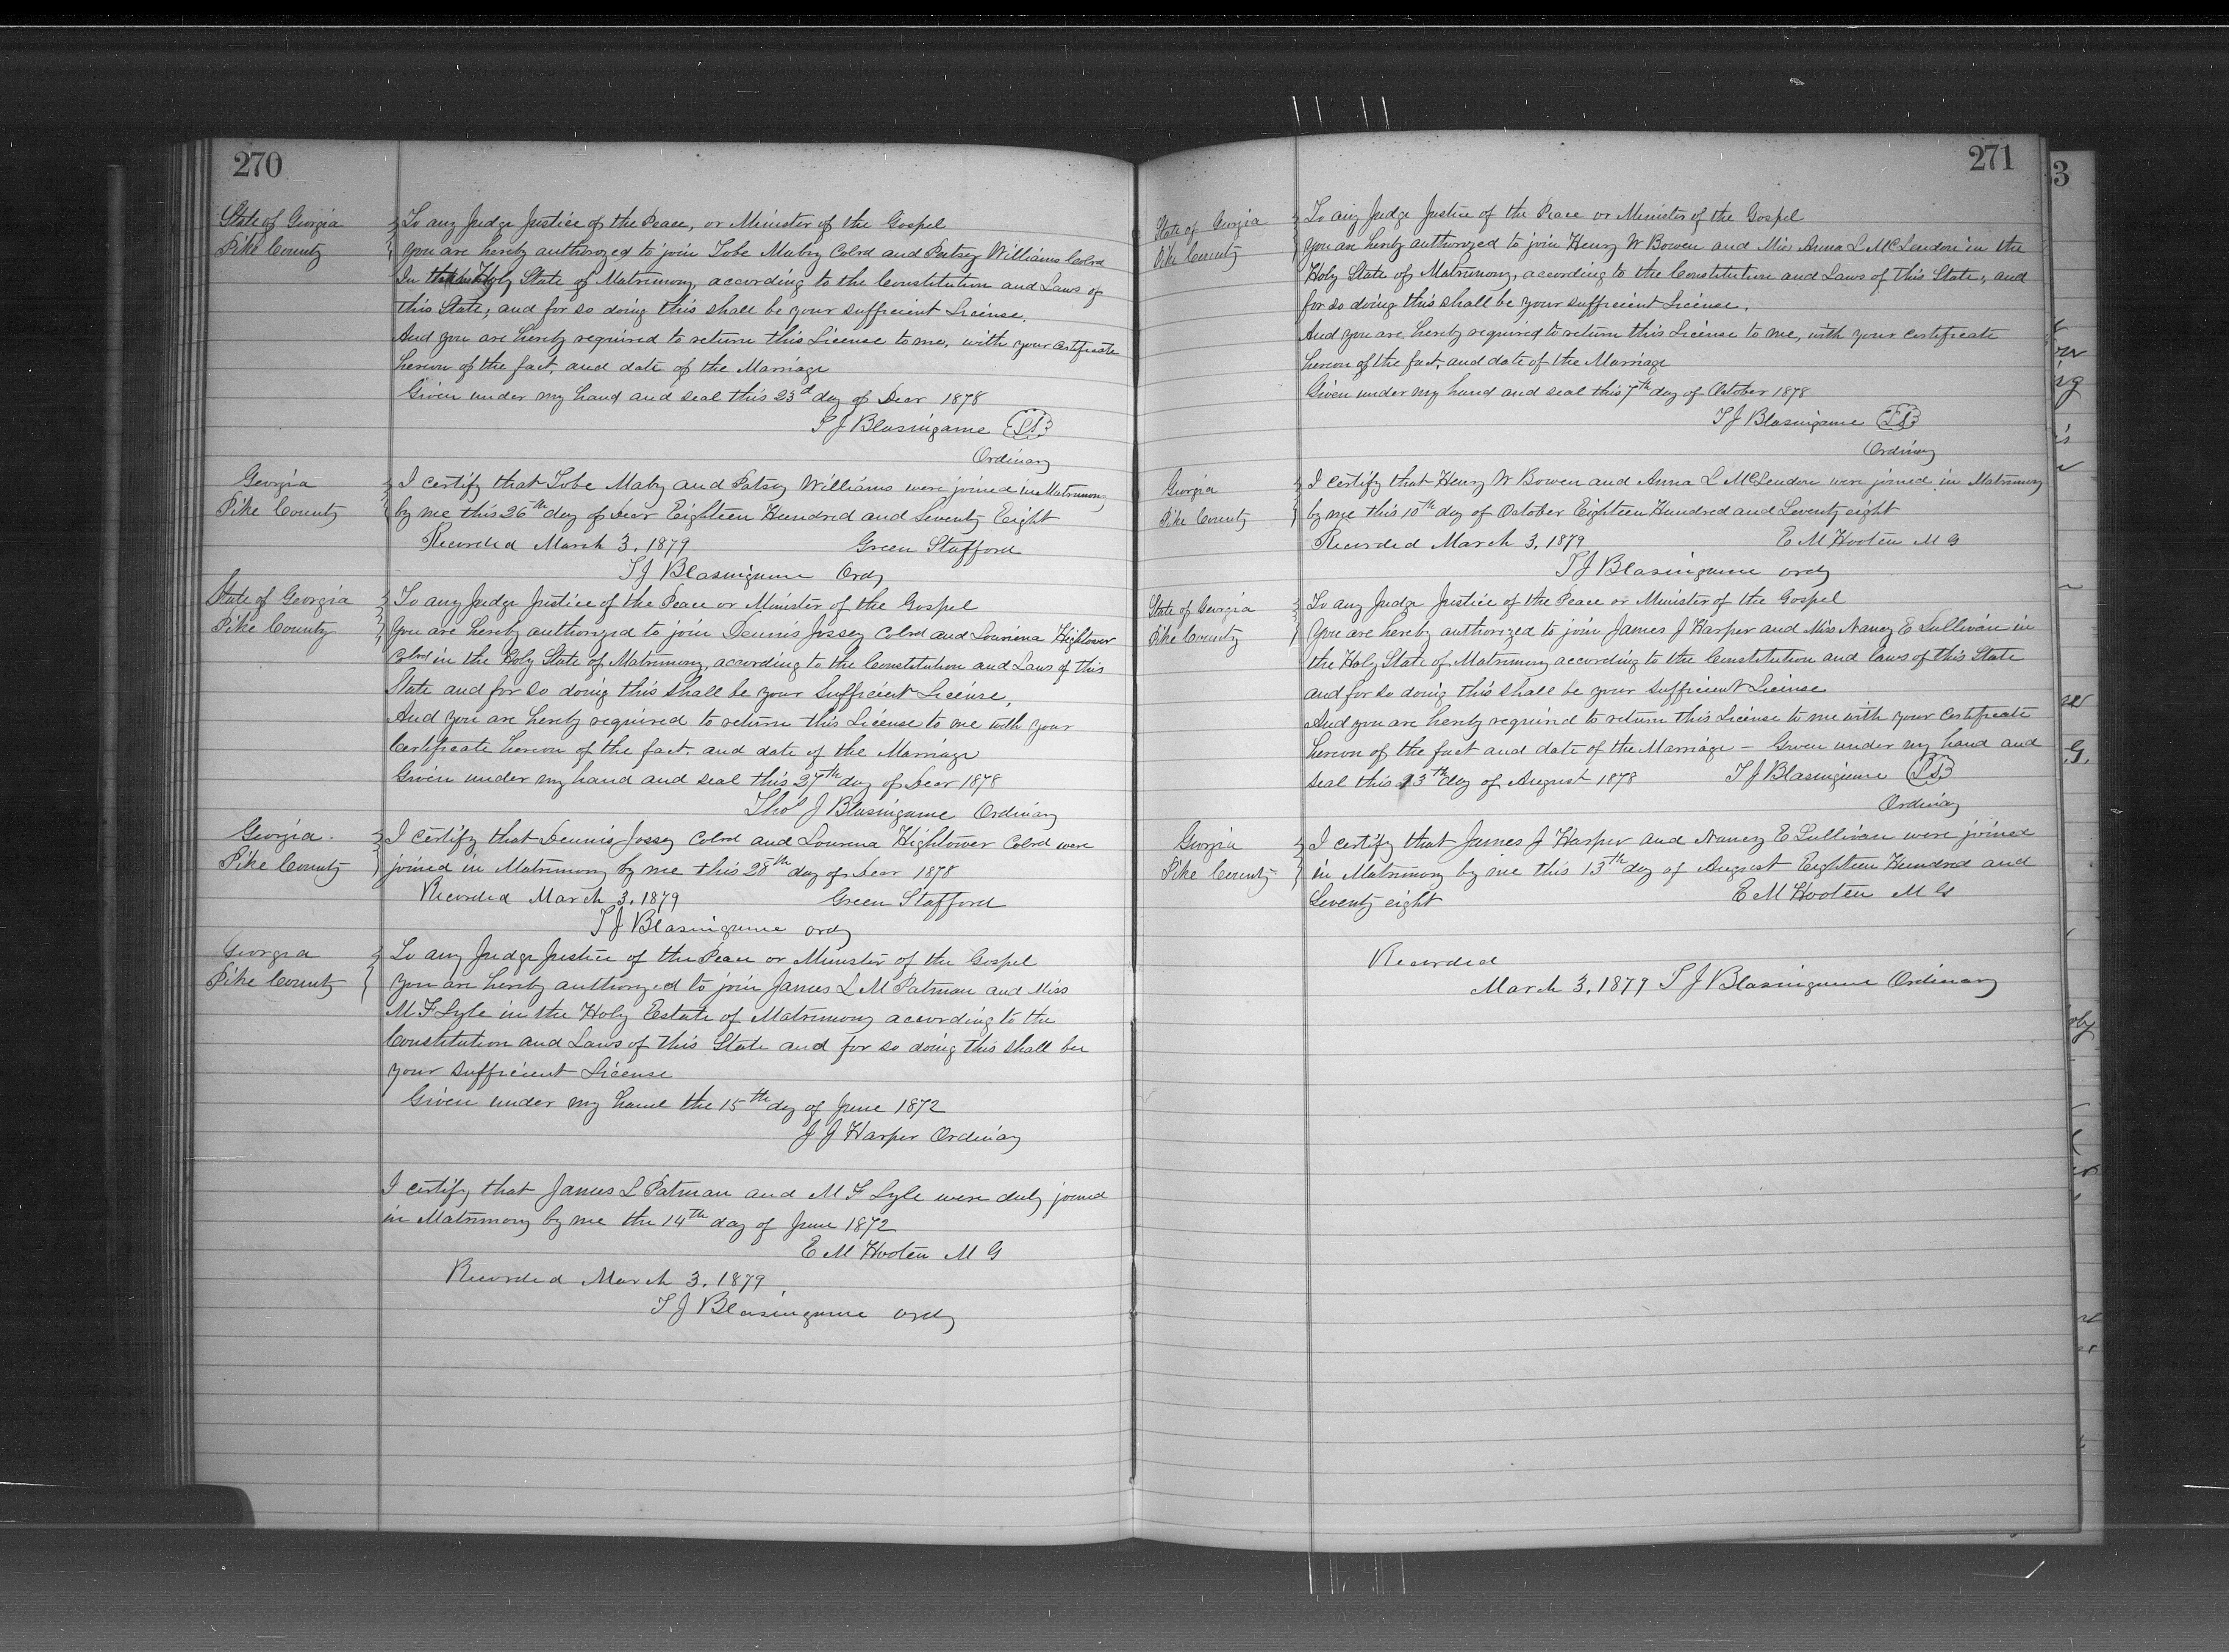 270
State of Georgia
Pike County
To any Judge Justice of the Peace, or Minister of the Gospel
you are hereby authorized to join Tobe Mabry Colrd and Patsey Williams Colrd
In the Holy State of Matrimony, according to the Constitution and Laws of
this State, and for so doing this shall be your sufficient License.
And you are hereby required to return this License to me, with your certificate
hereon of the fact, and date of the Marriage
Given under my hand and seal this 23d day of Decr 1878
T J Blasingame LS
Ordinary
Georgia
Pike County
I certify that Tobe Maby and Patsey Williams were joined in Matrimony
by me this 26th day of Decr Eighteen Hundred and Seventy Eight
Recorded March 3, 1879 Green Stafford
T J Blasingame Ordy
State of Georgia
Pike County
To any Judge Justice of the Peace or Minister of the Gospel
You are hereby authorized to join Dennis Jossey Colrd and Lourena Hightower
Colrd in the Holy State of Matrimony, according to the Constitution and Laws of this
State and for so doing this shall be your Sufficient License,
And you are hereby required to return this License to me with your
Certificate hereon of the fact. and date of the Marriage
Given under my hand and seal this 27th day of Decr 1878
Thos J Blasingame Ordinary
Georgia
Pike County
I certify that Dennis Jossey Colrd and Lourena Hightower Colrd were
joined in Matrimony by me this 28th day of Decr 1878
Recorded March 3, 1879 Green Stafford
T J Blasingame ordy
Georgia
Pike County
To any Judge Justice of the Peace or Minister of the Gospel
You are hereby authorized to join James L M Patman and Miss
M F Lyle in the Holy Estate of Matrimony according to the
Constitution and Laws of this State and for so doing this shall be
your sufficient License
Given under my hand the 15th day of June 1872
J J Harper Ordinary
I certify that James L Patman and M F Lyle were duly joined
in Matrimony by me the 14th day of June 1872
E M Hooten M G
Recorded March 3, 1879
T J Blasingame ordy
271
State of Georgia
Pike County
To any Judge Justice of the Peace or Minister of the Gospel
You are hereby authorized to join Henry W Bowen and Miss Anna L McLendon in the
Holy State of Matrimony, according to the Constitution and Laws of this State, and
for so doing this shall be your sufficient License.
And you are hereby required to return this License to me, with your certificate
hereon of the fact, and date of the Marriage
Given under my hand and seal this 7th day of October 1878
T J Blasingame LS
Ordinary
Georgia
Pike County
I certify that Henry W Bowen and Anna L McLendon were joined in Matrimony
by me this 10th day of October Eighteen Hundred and Seventy eight
Recorded March 3, 1879 E M Hooten M G
T J Blasingame ordy
State of Georgia
Pike County
To any Judge Justice of the Peace or Minister of the Gospel
You are hereby authorized to join James J Harper and Miss Nancy E Sullivan in
the Holy State of Matrimony according to the Constitution and laws of this State
and for so doing this shall be your sufficient License
And you are hereby required to return this License to me with your Certificate
hereon of the fact and date of the Marriage - Given under my hand and
seal this 13th day of August 1878 T J Blasingame LS
Ordinary
Georgia
Pike County
I certify that James J Harper and Nancy E Sullivan were joined
in Matrimony by me this 13th day of August Eighteen Hundred and
Seventy eight E M Hooten M G
Recorded
March 3, 1879 T J Blasingame Ordinary
3